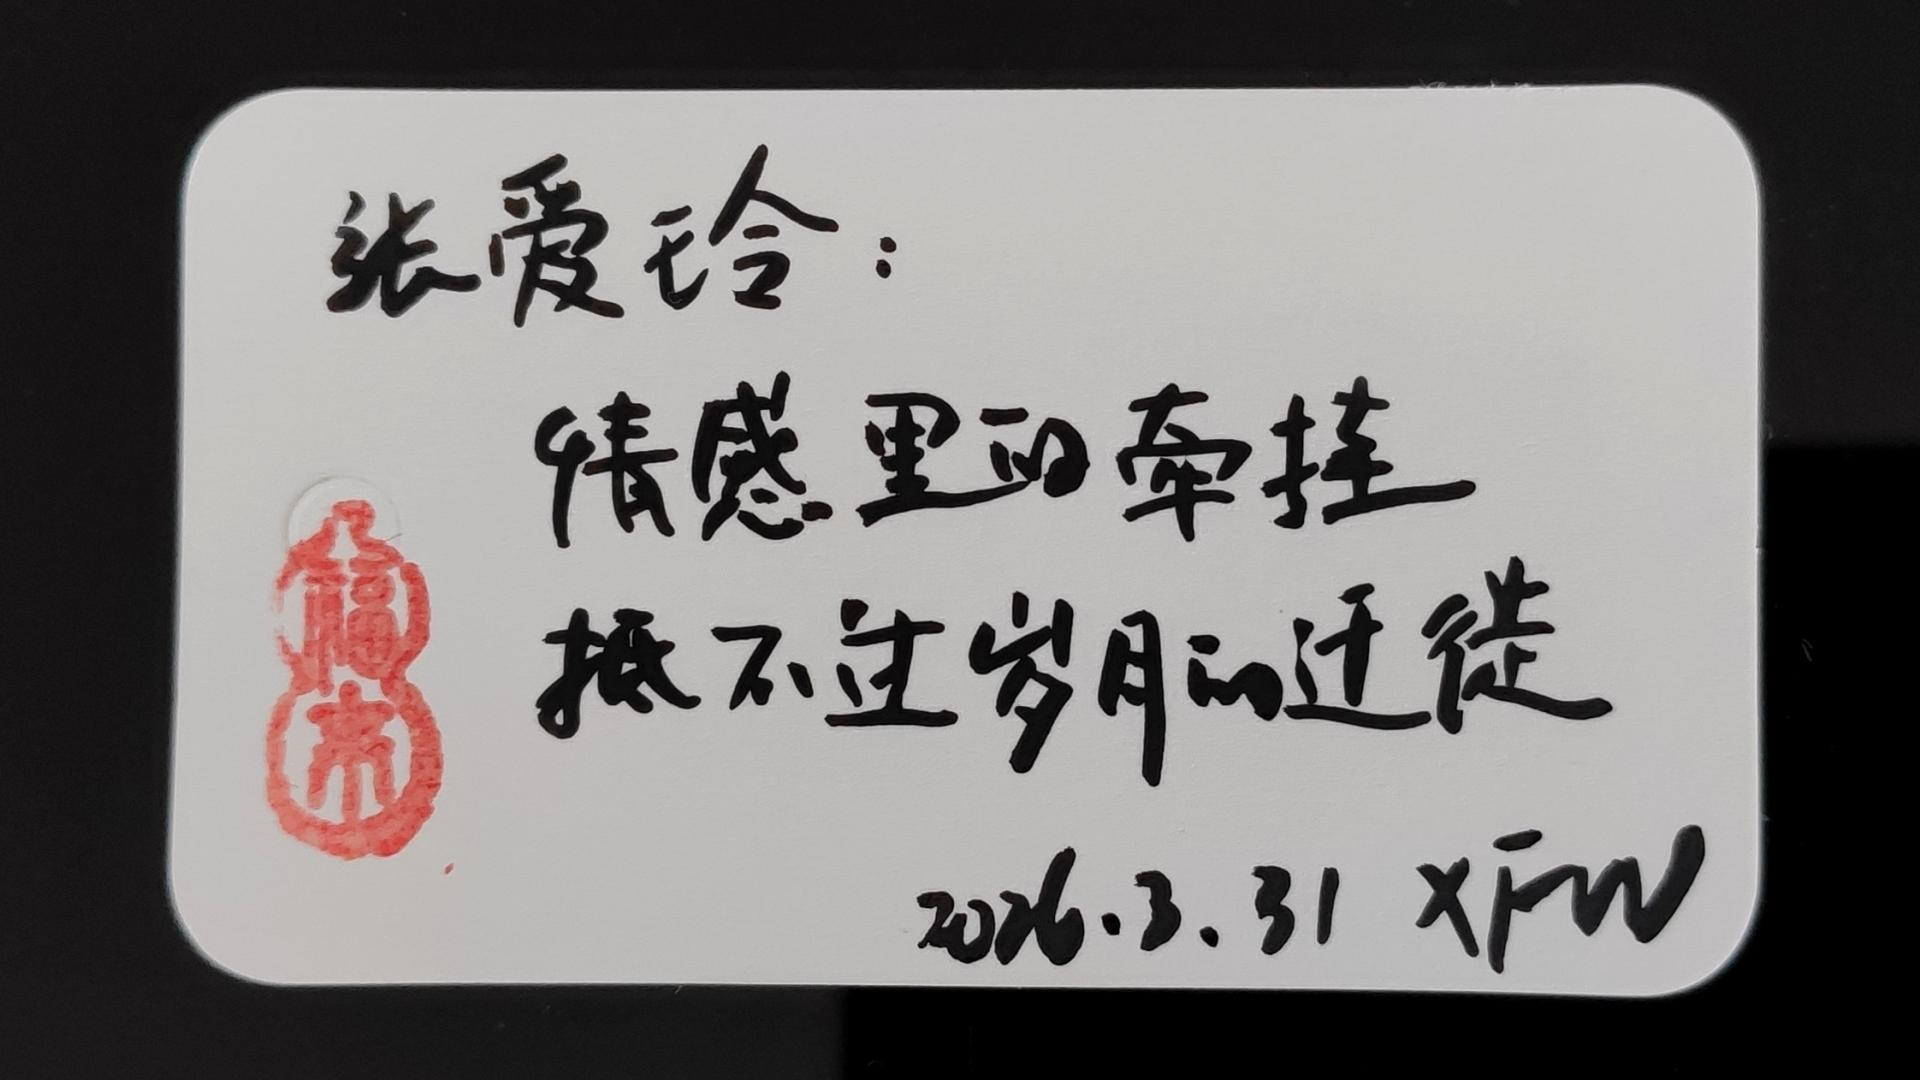 张爱玲：
情感里的牵挂
抵不过岁月的迁徙
2026.3.31 XFW
福